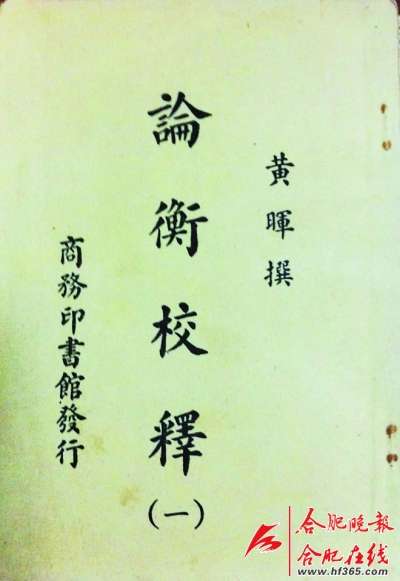 黃暉撰
論衡校釋
(一)
商務印書館發行
合肥晚報
合肥在线
www.hf365.com